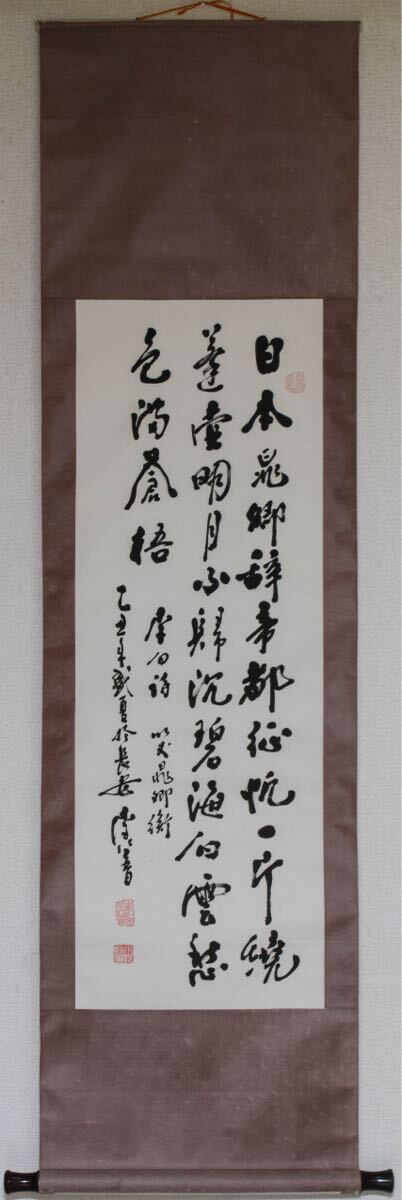 日本晁卿辞帝都征帆一片繞
蓬壺明月不歸沉碧海白雲愁
色满蒼梧
李白詩 哭晁卿衡
乙丑年盛夏於長安